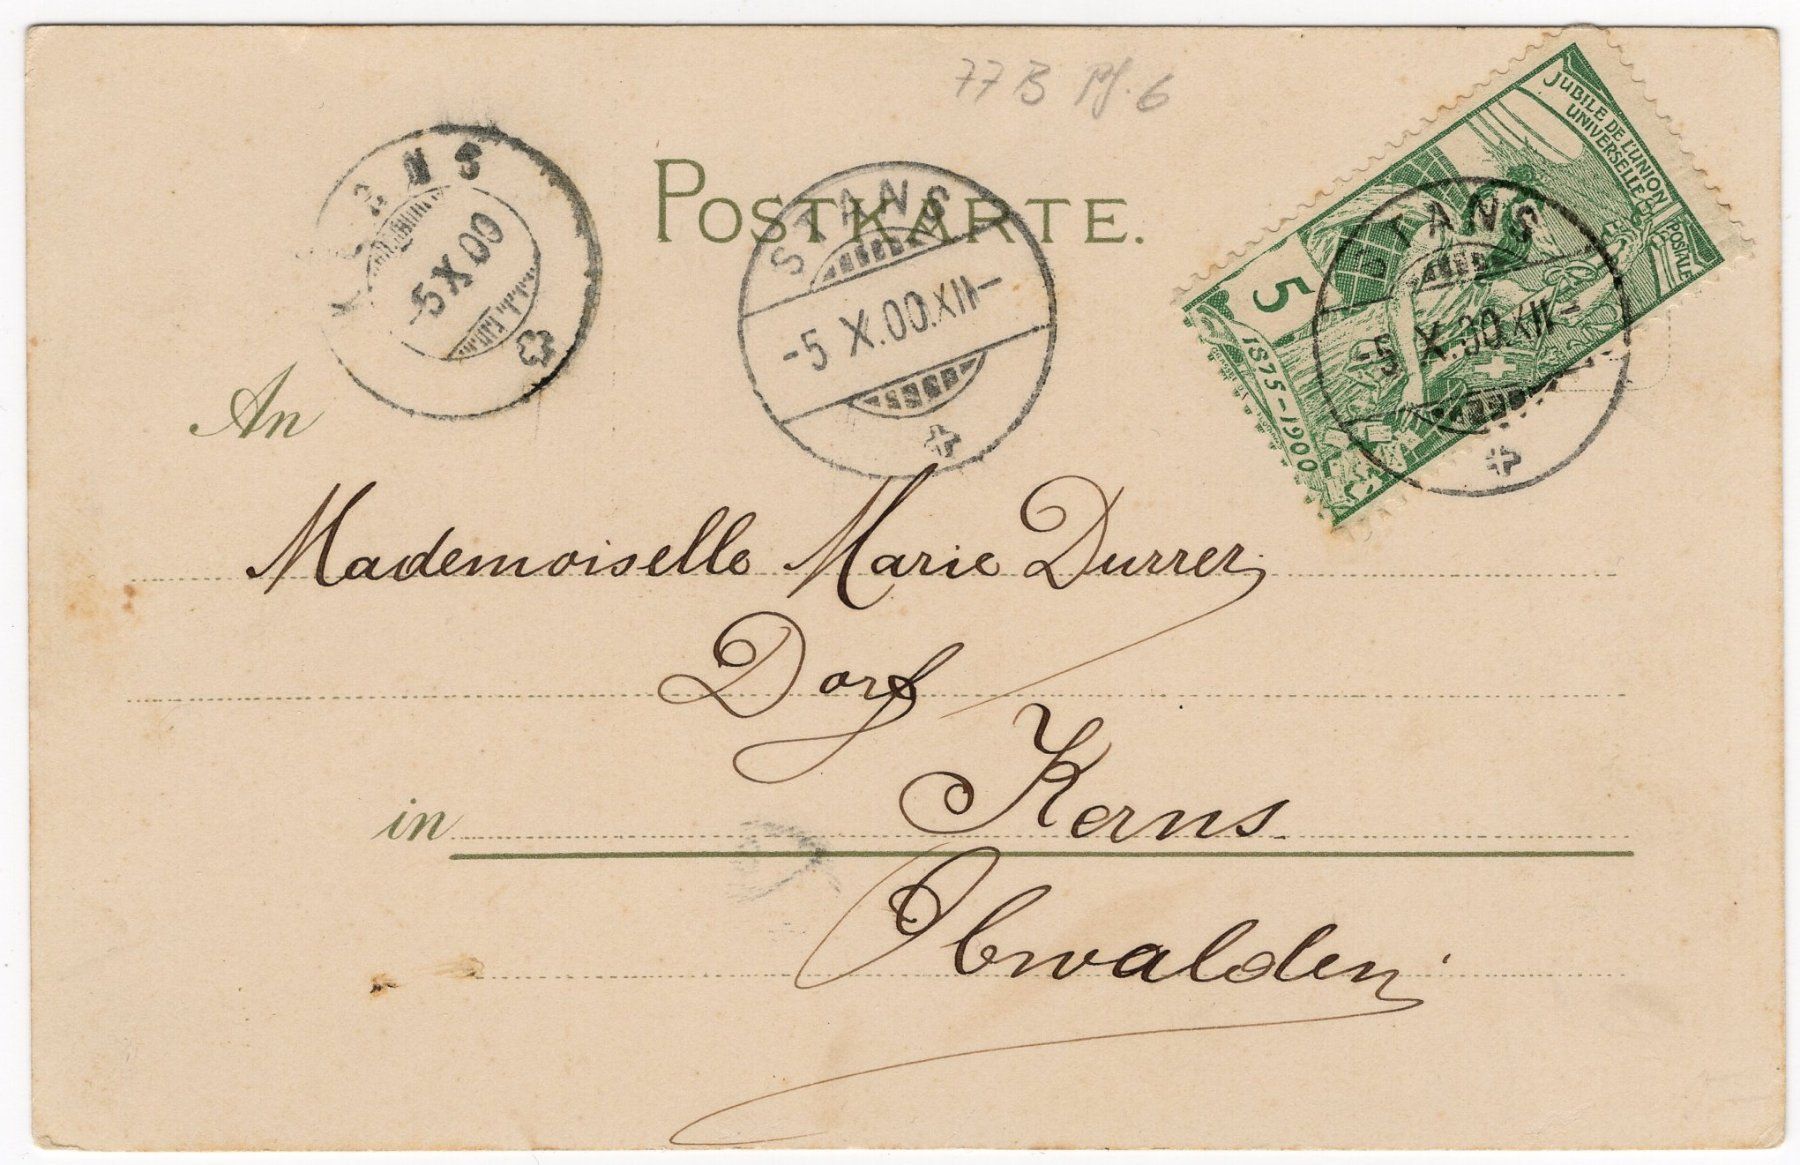 77B Pf. 6
POSTKARTE.
KERNS
-5 X 00
STANS
-5 X.00.XII-
JUBILE DE L'UNION
UNIVERSELLE
POSTALE
5
1875-1900
STANS
-5 X.00.XII-
An
Mademoiselle Marie Durrer
Dorf
in Kerns
Obwalden